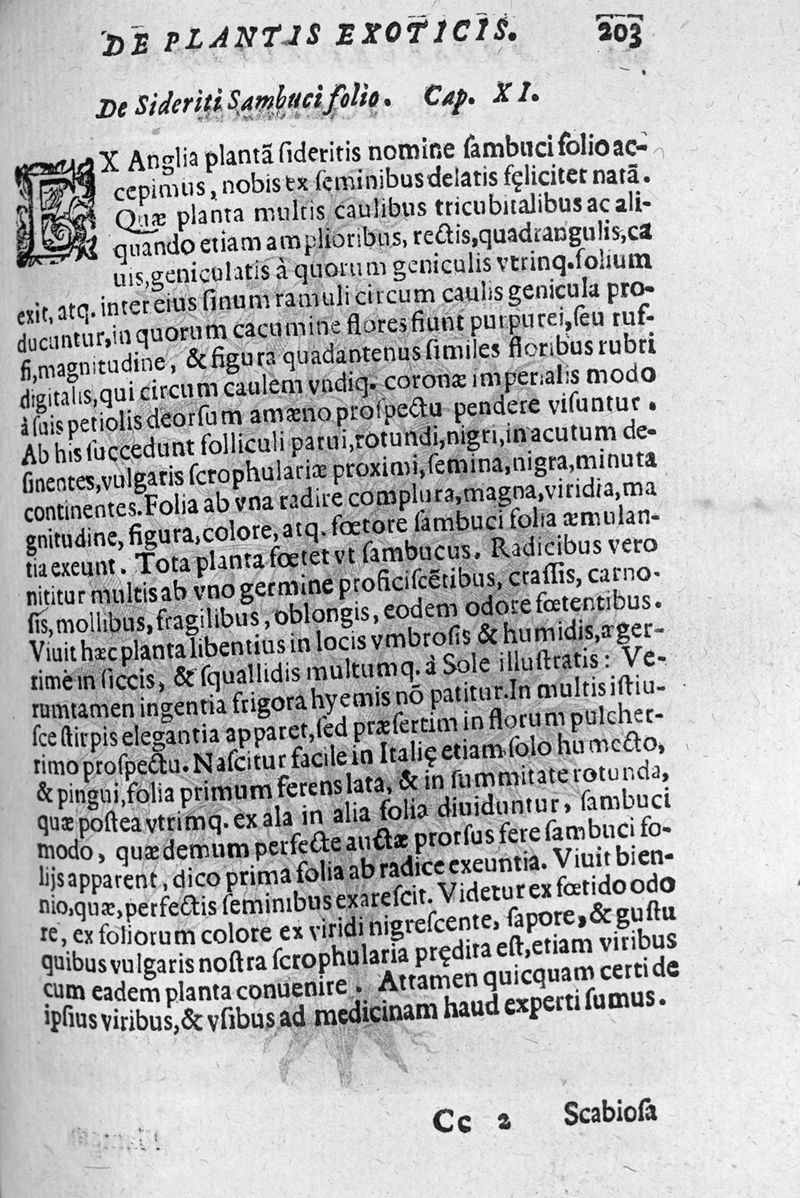 DE PLANTIS EXOTICIS. 203
De Sideriti Sambuci folio. Cap. XI.
EX Anglia plantã ſideritis nomine ſambuci folio ac-
cepimus, nobis ex ſeminibus delatis fęliciter natã.
Quæ planta multis caulibus tricubitalibus ac ali-
quando etiam amplioribus, rectis, quadrangulis, ca
uis, geniculatis à quorum geniculis vtrinq. folium
exit, atq. inter eius ſinum ramuli circum caulis genicula pro-
ducuntur, in quorum cacumine flores fiunt purpurei, ſeu ruf-
fi, magnitudine, & figura quadantenus ſimiles floribus rubri
digitalis, qui circum caulem vndiq. coronæ imperialis modo
à ſuis petiolis deorſum amæno proſpectu pendere viſuntur.
Ab his ſuccedunt folliculi parui, rotundi, nigri, in acutum de-
ſinentes, vulgaris ſcrophulariæ proximi, ſemina, nigra, minuta
continentes. Folia ab vna radice complura, magna, viridia, ma
gnitudine, figura, colore, atq. fœtore ſambuci folia æmulan-
tia exeunt. Tota planta fœtet vt ſambucus. Radicibus vero
nititur multis ab vno germine proficiſcẽtibus, craſſis, carno-
ſis, mollibus, fragilibus, oblongis, eodem odore fœtentibus.
Viuit hæc planta libentius in locis vmbroſis & humidis, æger-
rimè in ſiccis, & ſquallidis multumq. à Sole illuſtratis: Ve-
rumtamen ingentia frigora hyemis nõ patitur. In multis iſtiu-
ſce ſtirpis elegantia apparet, ſed præſertim in florum pulcher-
rimo proſpectu. Naſcitur facile in Italię etiam ſolo humecto,
& pingui, folia primum ferens lata, & in ſummitate rotunda,
quæ poſtea vtrimq. ex ala in alia folia diuiduntur, ſambuci
modo, quæ demum perfecte auctæ prorſus fere ſambuci fo-
lijs apparent, dico prima folia ab radice exeuntia. Viuit bien-
nio, quæ, perfectis ſeminibus exareſcit. Videtur ex fœtido odo
re, ex foliorum colore ex viridi nigreſcente, ſapore, & guſtu
quibus vulgaris noſtra ſcrophularia prędita eſt, etiam viribus
cum eadem planta conuenire. Attamen quicquam certi de
ipſius viribus, & vſibus ad medicinam haud experti ſumus.
Cc 2 Scabioſa